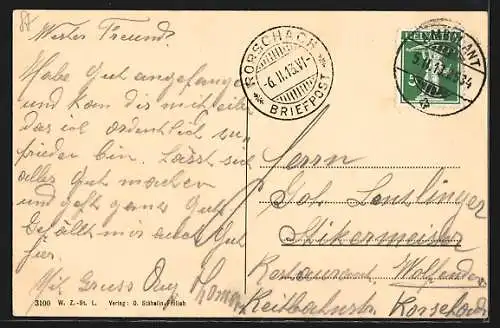 Werter Freund
Habe gut angefangen
und kan dir mitteilen
das ich ordentlich zu-
frieden bin. Lässt sich
alles gut machen
und geht ganz gut
gefällt mir auch gut
hier.
Mit Gruss
RORSCHACH
-6.II.13.VI-
BRIEFPOST
AMBULANT
5.II.13
Herrn
Stikermeister
Restaurant
Reitbahnstr. Rorschach
3100 W. Z.-St. L. Verlag: O.